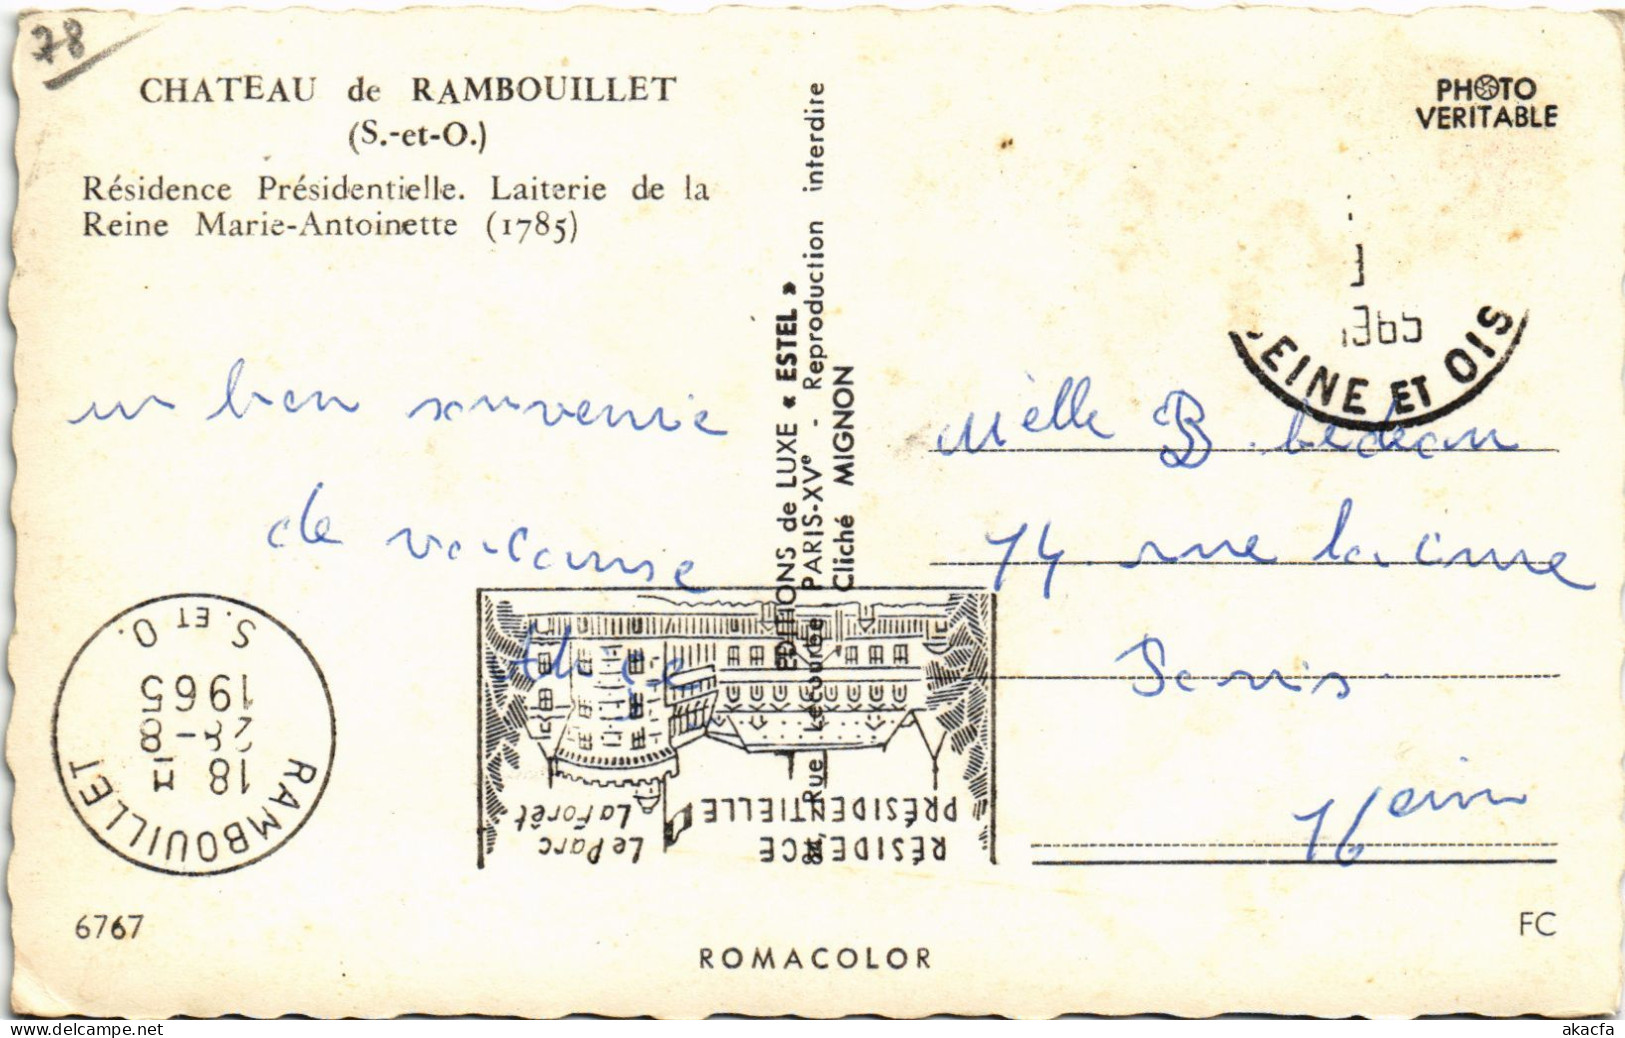 78
CHATEAU de RAMBOUILLET
(S.-et-O.)
Résidence Présidentielle. Laiterie de la
Reine Marie-Antoinette (1785)
un bon souvenir
de vacanse
RAMBOUILLET
18 H
28-8
1965
S. ET O.
RÉSIDENCE
PRÉSIDENTIELLE
Le Parc
La Forêt
EDITIONS de LUXE « ESTEL »
Rue Lecourbe PARIS-XVe - Reproduction interdire
Cliché MIGNON
PHOTO
VERITABLE
1965
SEINE ET OIS
Melle B.
74 rue la
Paris
16
6767
ROMACOLOR
FC
akacfa